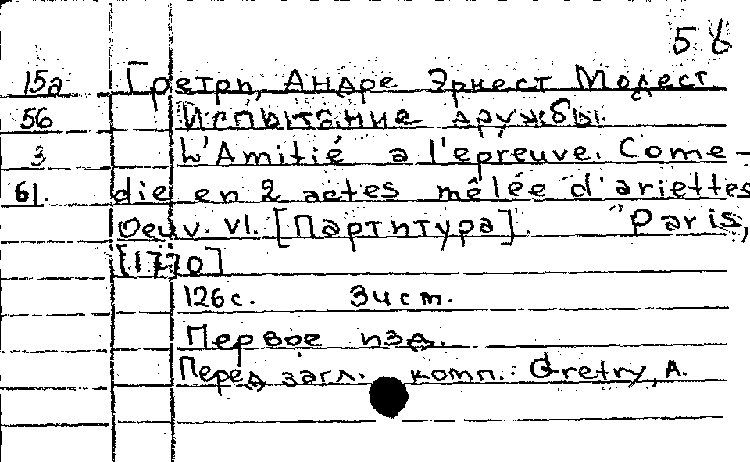 58
15а Гретри, Андре Эрнест Модест
56 Испытание дружбы.
3 L'Amitié a l'epreuve. Come-
61. die en 2 actes mêlée d'ariettes
Oeuv. VI. [Партитура]. Paris,
[1770]
126 с. 3 ист.
Первое изд.
Перед загл. комп.: Gretry, A.